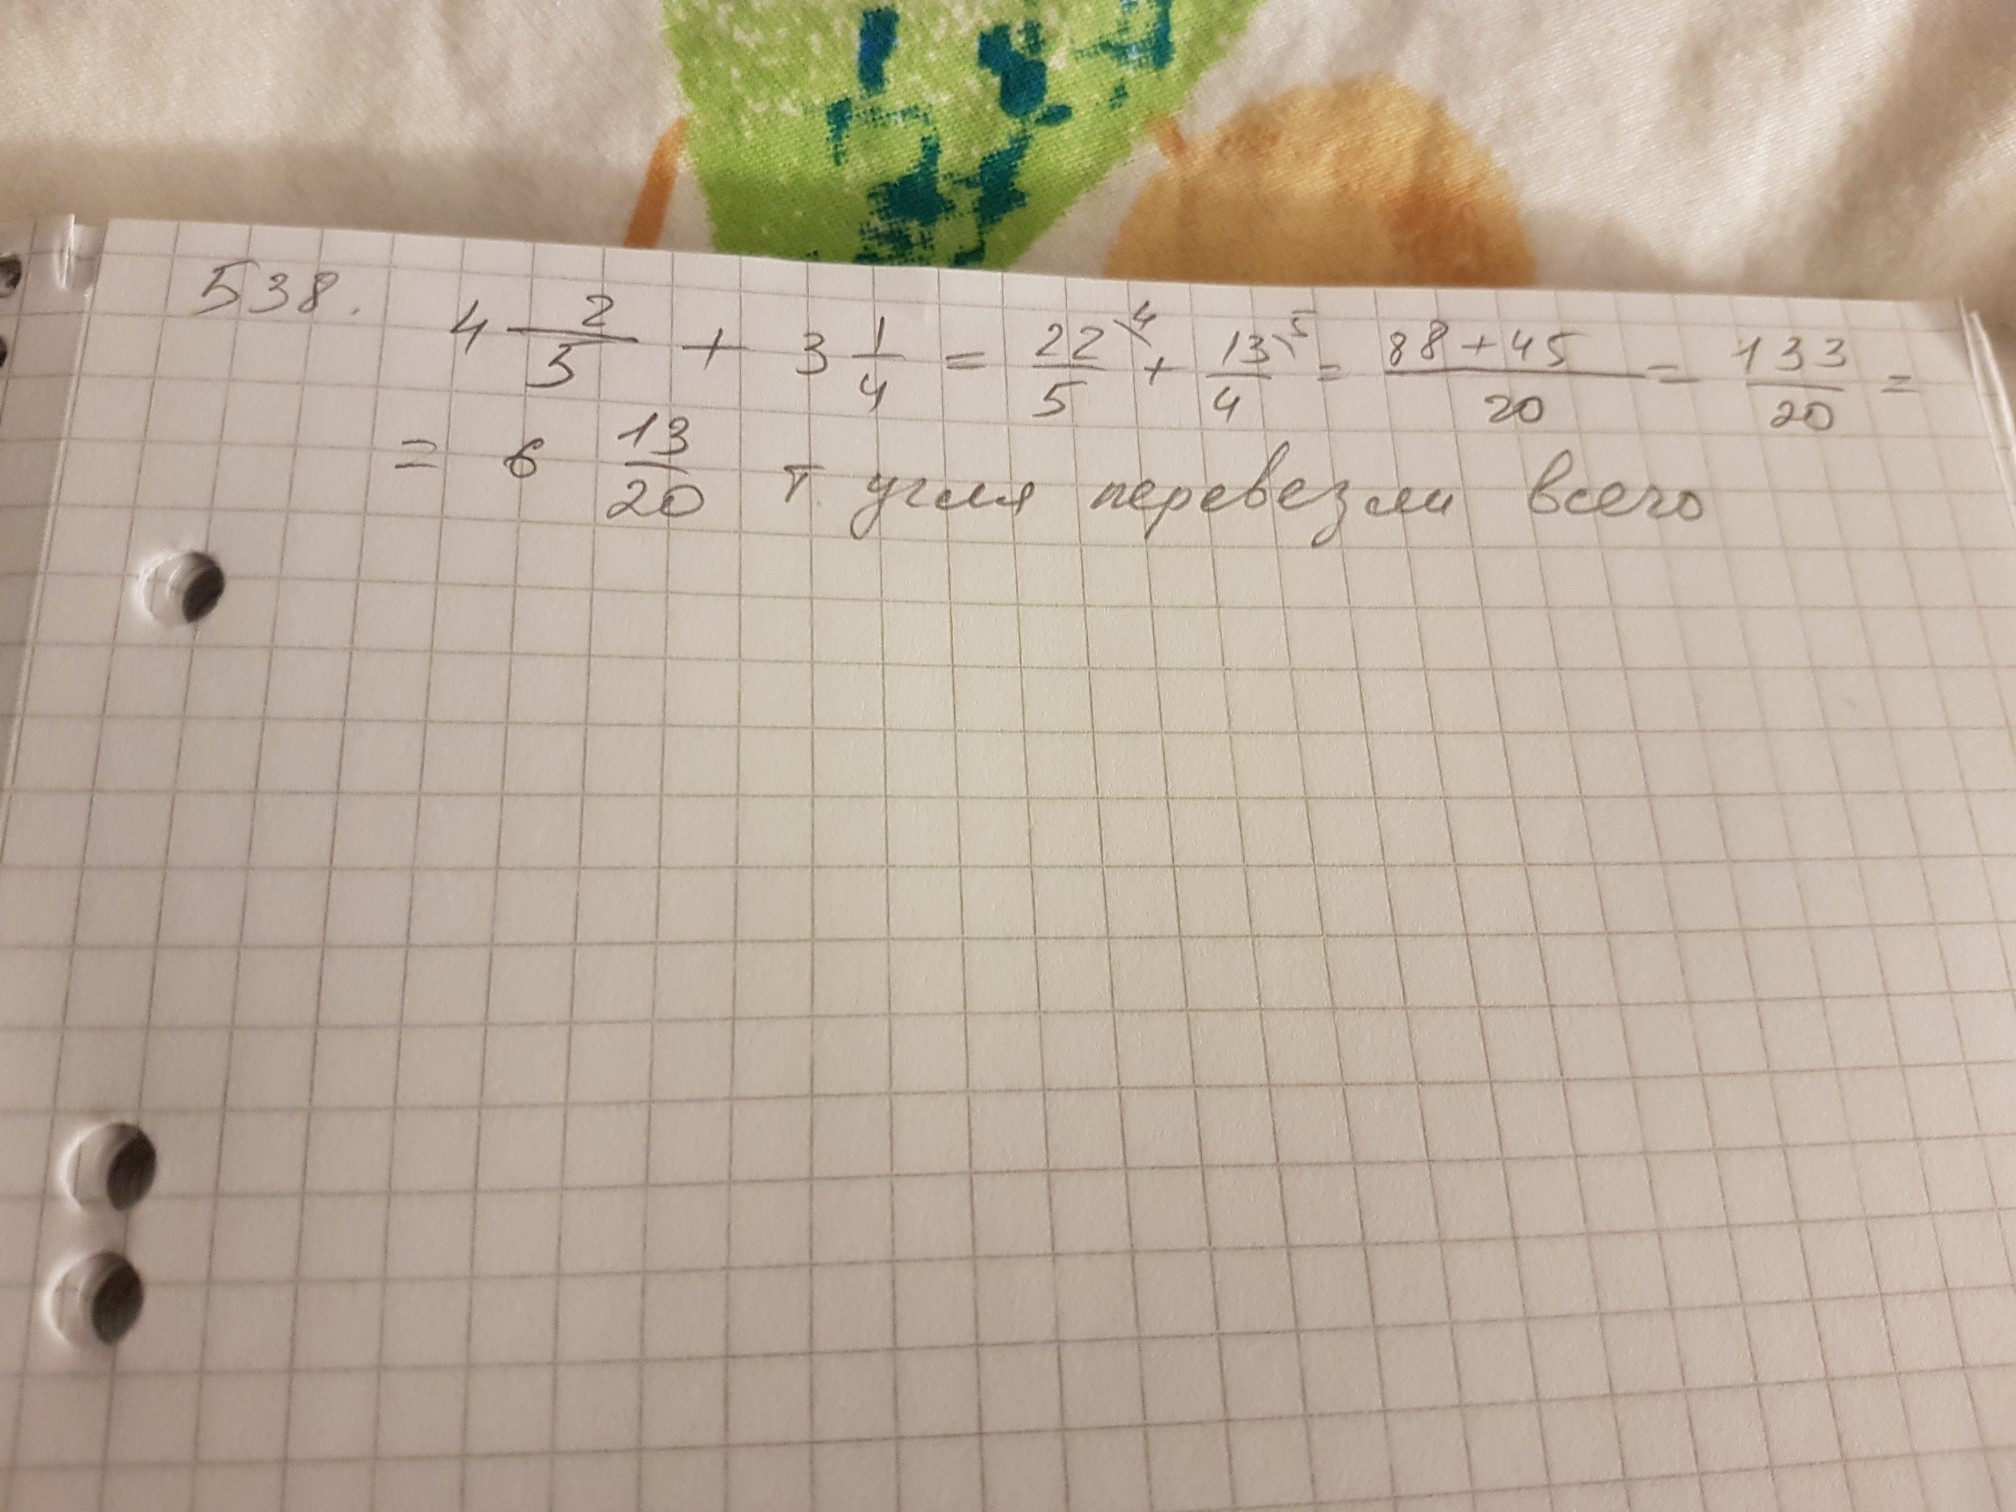 538. 4 2/5 + 3 1/4 = 22\4/5 + 13\5/4 = 88+45/20 = 133/20 =
= 6 13/20 т угля перевезли всего